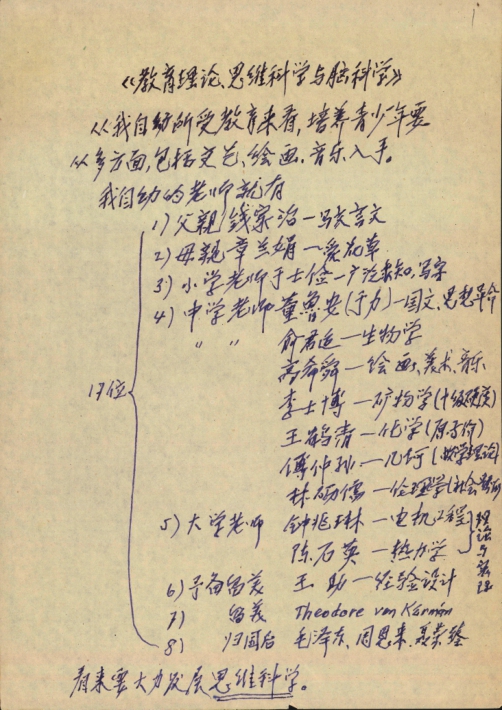 《教育理论、思维科学与脑科学》
从我自幼所受教育来看，培养青少年要
从多方面，包括文艺、绘画、音乐入手。
我自幼的老师就有
1) 父親 钱家治—写文言文
2) 母親 章兰娟—爱花草
3) 小学老师 于士俭—广泛求知，写字
4) 中学老师 董鲁安(于力)—国文、思想革命
〃 〃 俞君适—生物学
高希舜—绘画、美术、音乐
李士博—矿物学(十级硬度)
王鹤清—化学(原子价)
傅仲孙—几何(数学理论)
林砺儒—伦理学(社会发展)
5) 大学老师 钟兆琳—电机工程
陈石英—热力学
理论与实理
6) 予备留美 王 助—经验设计
7) 留美 Theodore von Kármán
8) 归国后 毛泽东、周恩来、聂荣臻
17位
看来要大力发展思维科学。